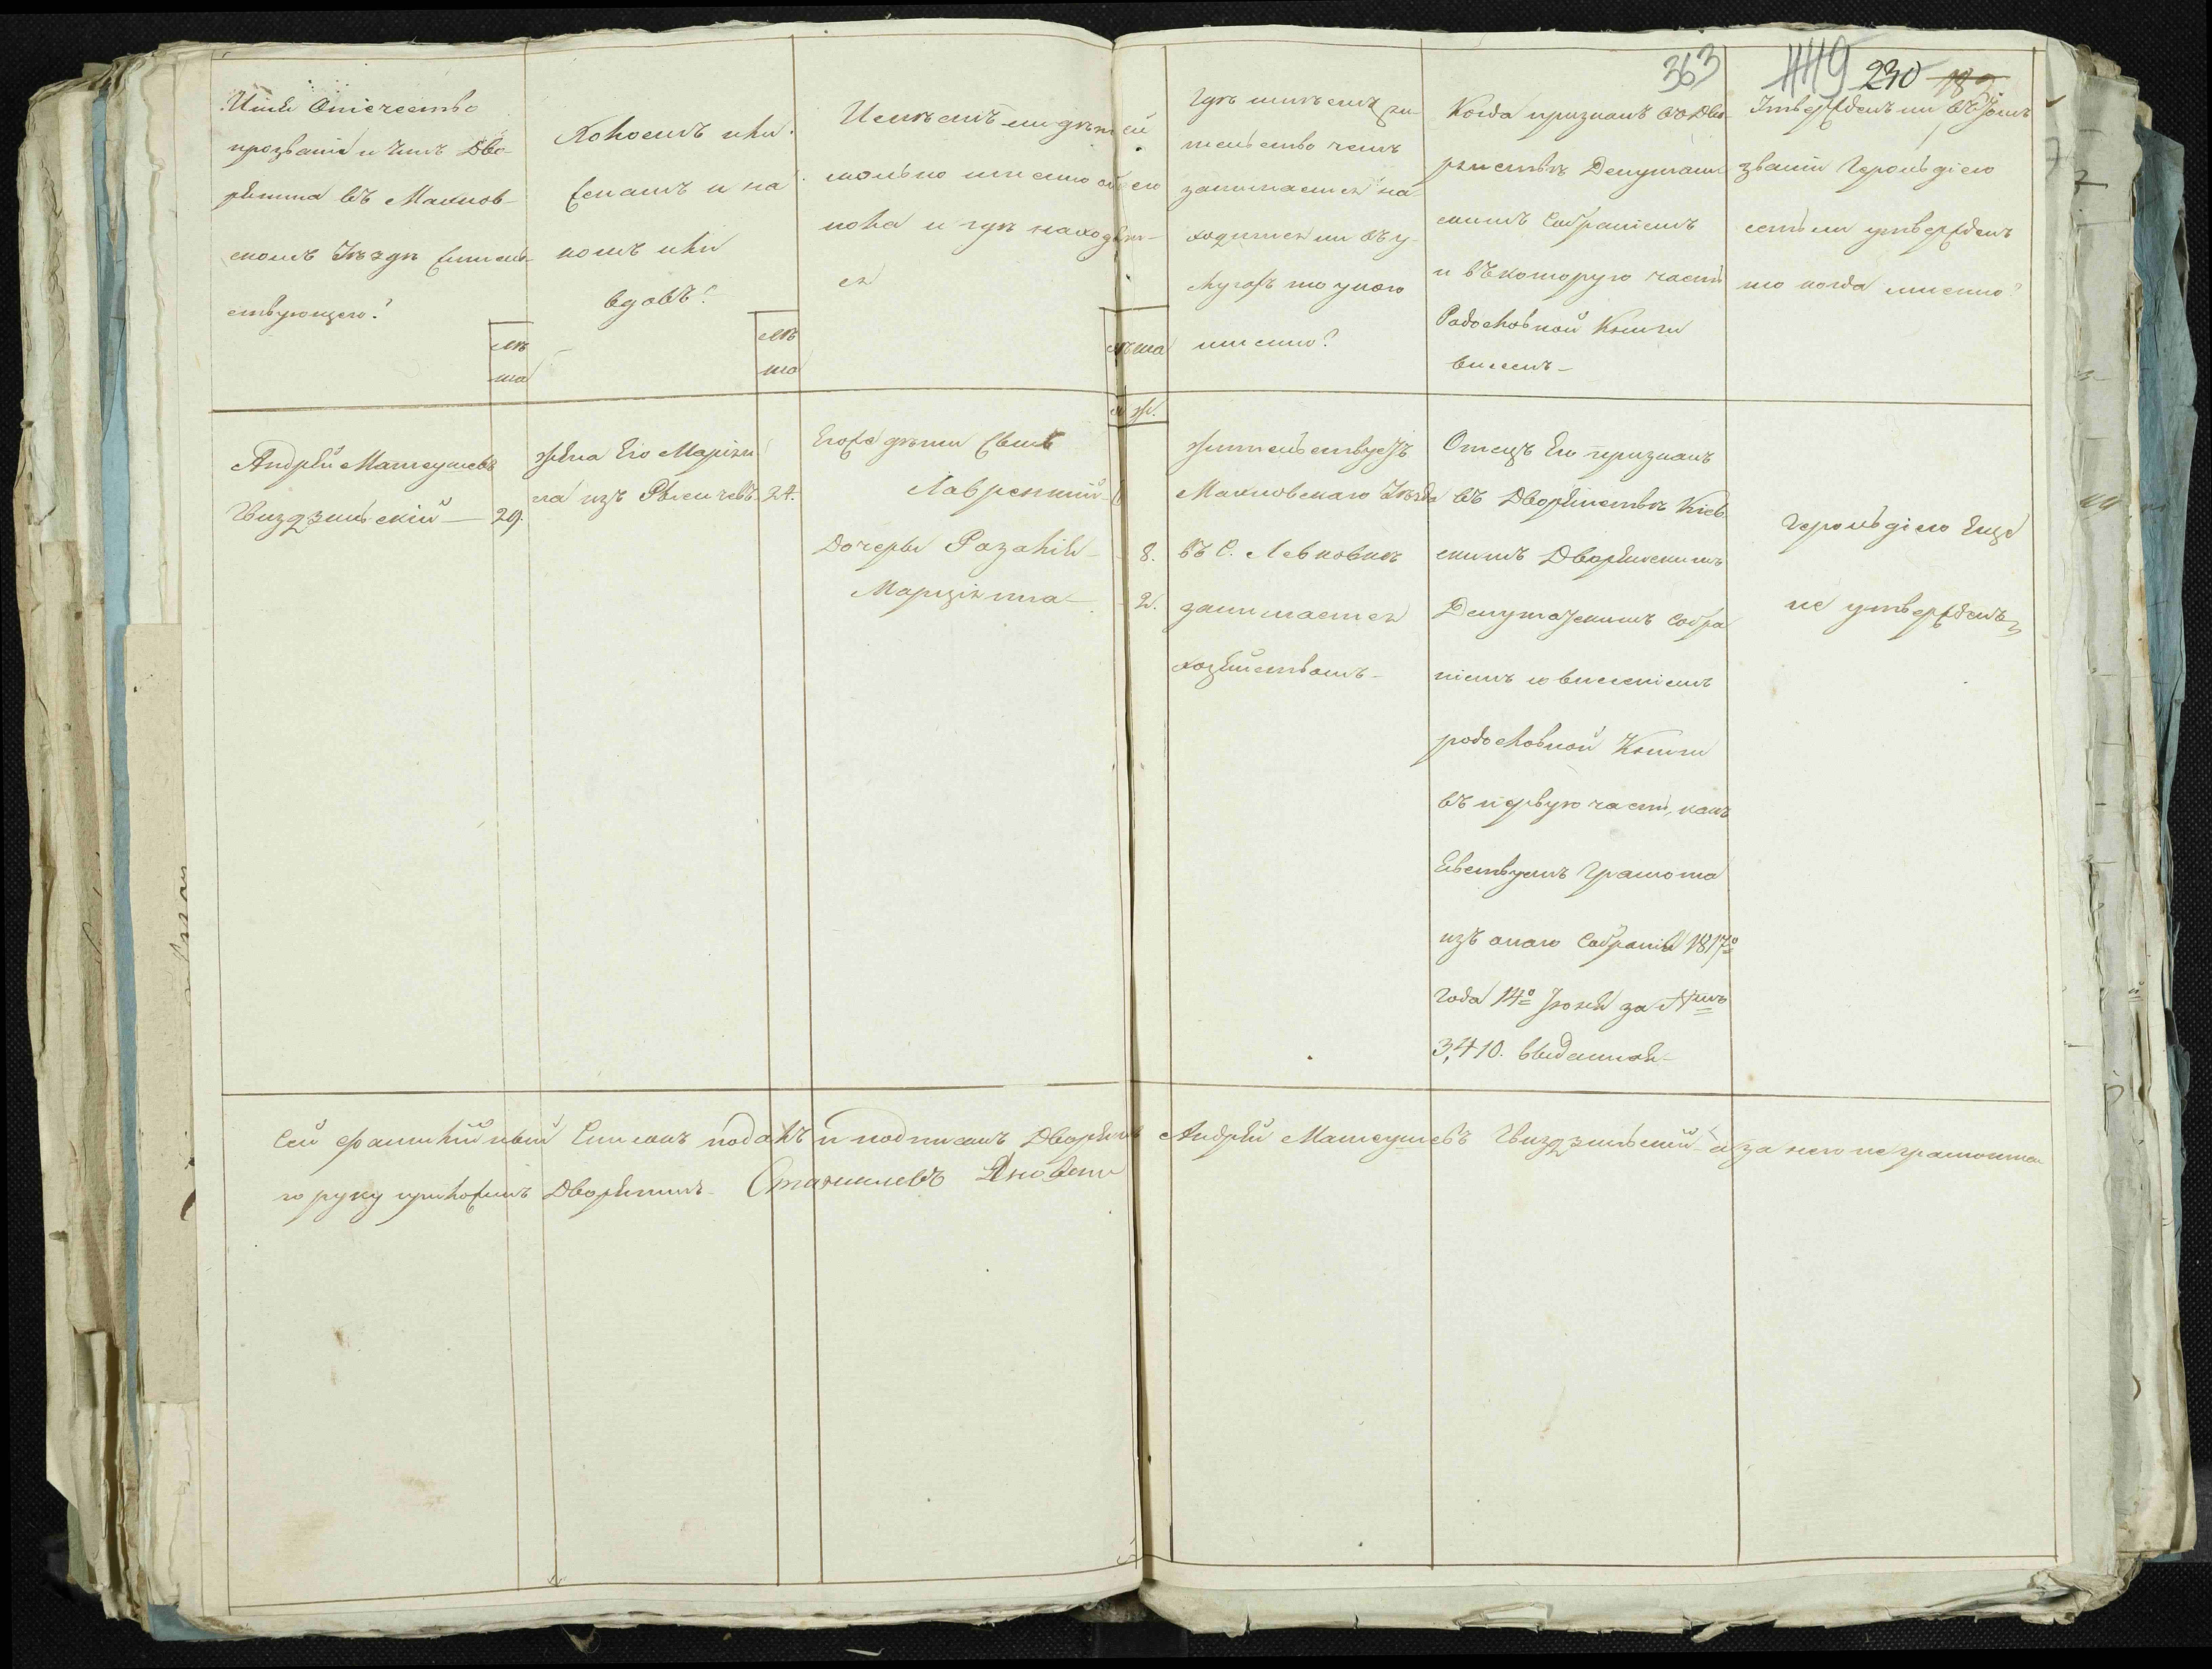 363
449 230 182
Имя Отечество
прозваніе и Чинъ Дво-
рянина въ Махнов-
скомъ Уѣздѣ жительс-
твующаго?
лѣ
та
Холостъ или
женатъ и на
комъ или
вдовъ?
лѣ
та
Имѣетъ ли дѣтей
сколько именно обоего
пола и гдѣ находят-
ся
лѣта
м ж.
Гдѣ имѣетъ жи-
тельство чемъ
занимается на-
ходится ли въ у-
слугахъ то у кого
именно?
Когда признанъ въ Дво-
рянствѣ Депутат-
скимъ Собраніемъ
и въ которую часть
Родословной Книги
внесенъ
Утвержденъ ли въ томъ
званіи Герольдіею
естьли утвержденъ
то когда именно?
Андрей Матеушевъ
Гвиздзинскій — 29.
жена Его Маріян-
на изъ 24.
Егожъ дѣти сынъ
Лаврентій
Дочеры Розалія — 8.
Марціянна — 2.
жительствуетъ
Махновскаго Уѣзда
въ С. Левковкѣ
занимается
хозяйствомъ
Отецъ Его признанъ
въ Дворянствѣ Кіев-
скимъ Дворянскимъ
Депутатскимъ Собра
ніемъ со внесеніемъ
родословной Книги
въ первую часть, какъ
явствуетъ Грамота
изъ онаго Собранія 1817го
года 14го Іюня за №мъ
3,410. выданная
Герольдіею Еще
не утвержденъ
Сей фамилійный Списокъ подалъ и подписалъ Дворянинъ Андрей Матеушевъ Гвиздзинскій а за него неграмотна-
го руку приложилъ Дворянинъ Станиславъ